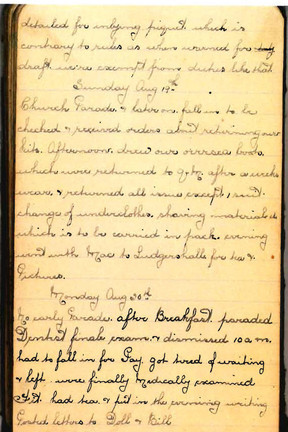 detailed for inlying piquet which is
contrary to rules as when warned for
draft we're exempt from duties like that
Sunday Aug 19th
Church Parade & later on fall in to be
checked & received orders about returning our
kits. Afternoon drew our oversea boots
which were returned to Q.M. after a weeks
wear & returned all issue except 1 suit
change of underclothes shaving materials &
which is to be carried in pack. evening
went with Mac to Ludgershalls for tea &
Pictures.
Monday Aug 20th
No early Parade. after Breakfast. paraded
Dentist final exam. & dismissed 10 a.m.
had to fall in for Pay. got tired of waiting
& left. were finally Medically examined
Fit. had tea & put in the evening writing
Posted letters to Doll & Bill